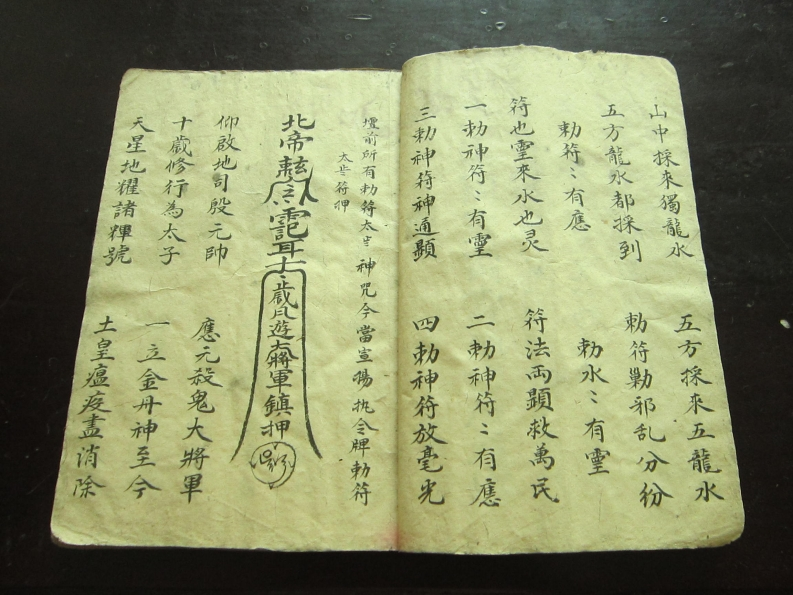 山中採來獨龍水　五方採來五龍水
五方龍水都採到　勅符剿邪乱分份
勅符〻有應　勅水〻有靈
符也靈來水也灵　符法両顕救萬民
一勅神符〻有靈　二勅神符〻有應
三勅神符神通顕　四勅神符放毫光
壇前所有勅符太歲神咒今當宣揚执令牌勅符
太歲符押
北帝
歲月遊大將軍鎮押
仰啟地司殷元帥　應元殺鬼大將軍
十歲修行為太子　一立金丹神至今
天星地耀諸輝號　土皇瘟疫盡消除